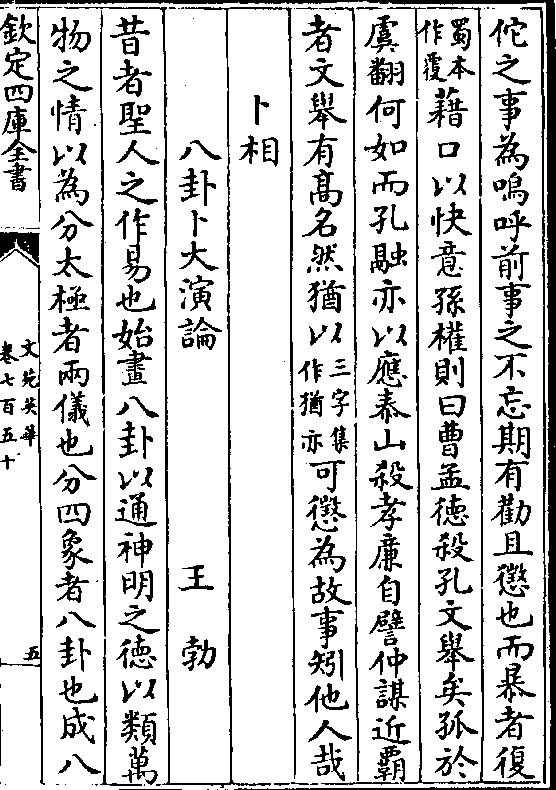 佗之事為嗚呼前事之不忘期有勸且懲也而暴者復
蜀本作覆藉口以快意孫權則曰曹孟德殺孔文舉矣孤於
虞翻何如而孔融亦以應泰山殺孝廉自譬仲謀近覇
者文舉有髙名然猶以三字集作猶亦可懲為故事矧他人哉
卜相
八卦卜大演論 王勃
昔者聖人之作易也始畫八卦以通神明之德以類萬
物之情以為分太極者兩儀也分四象者八卦也成八
欽定四庫全書
文苑英華
卷七百五十
五